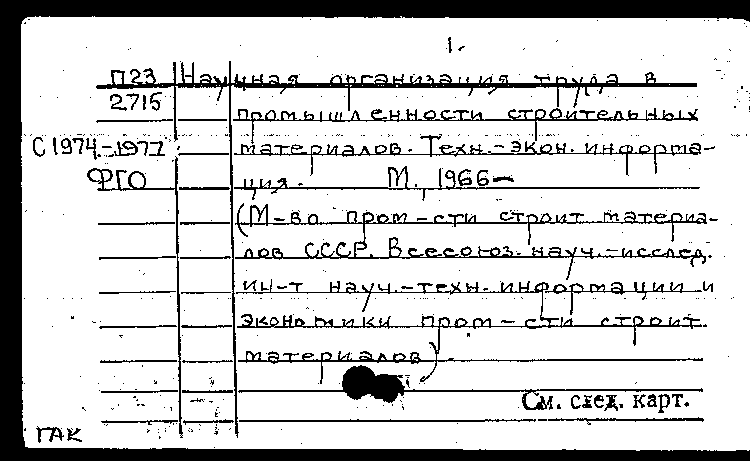 1.
П23 Научная организация труда в
2715 промышленности строительных
С 1974-1977 материалов. Техн.-экон. информа-
ФГО ция. М., 1966-
(М-во пром-сти строит материа-
лов СССР. Всесоюз. науч.-исслед.
ин-т науч.-техн. информации и
экономики пром-сти строит.
материалов).
См. след. карт.
ГАК